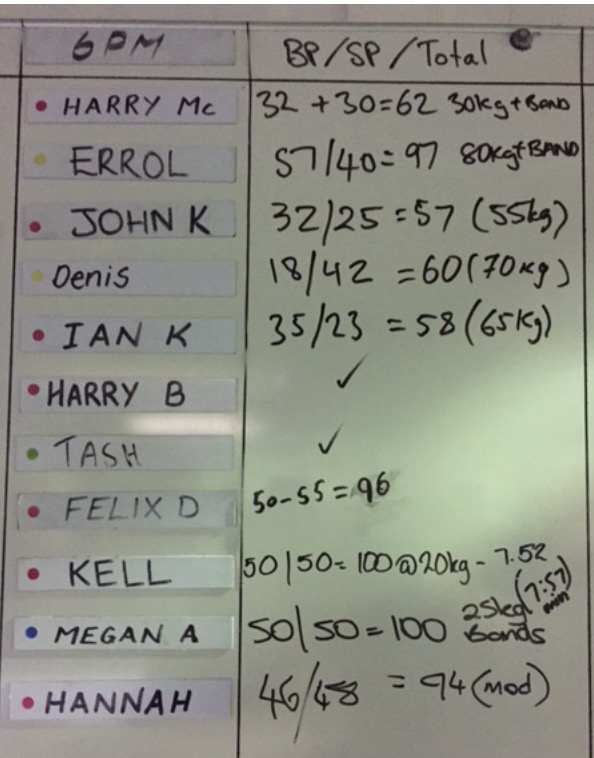 6PM BP/SP/Total
HARRY Mc 32 + 30 = 62 30kg + BAND
ERROL 57/40 = 97 80kg + BAND
JOHN K 32/25 = 57 (55kg)
Denis 18/42 = 60 (70kg)
IAN K 35/23 = 58 (65kg)
HARRY B ✓
TASH ✓
FELIX D 50-55 = 96
KELL 50/50 = 100 @ 20kg - 7.52
MEGAN A 50/50 = 100 25kg Bands (7:57 min)
HANNAH 46/48 = 94 (mod)